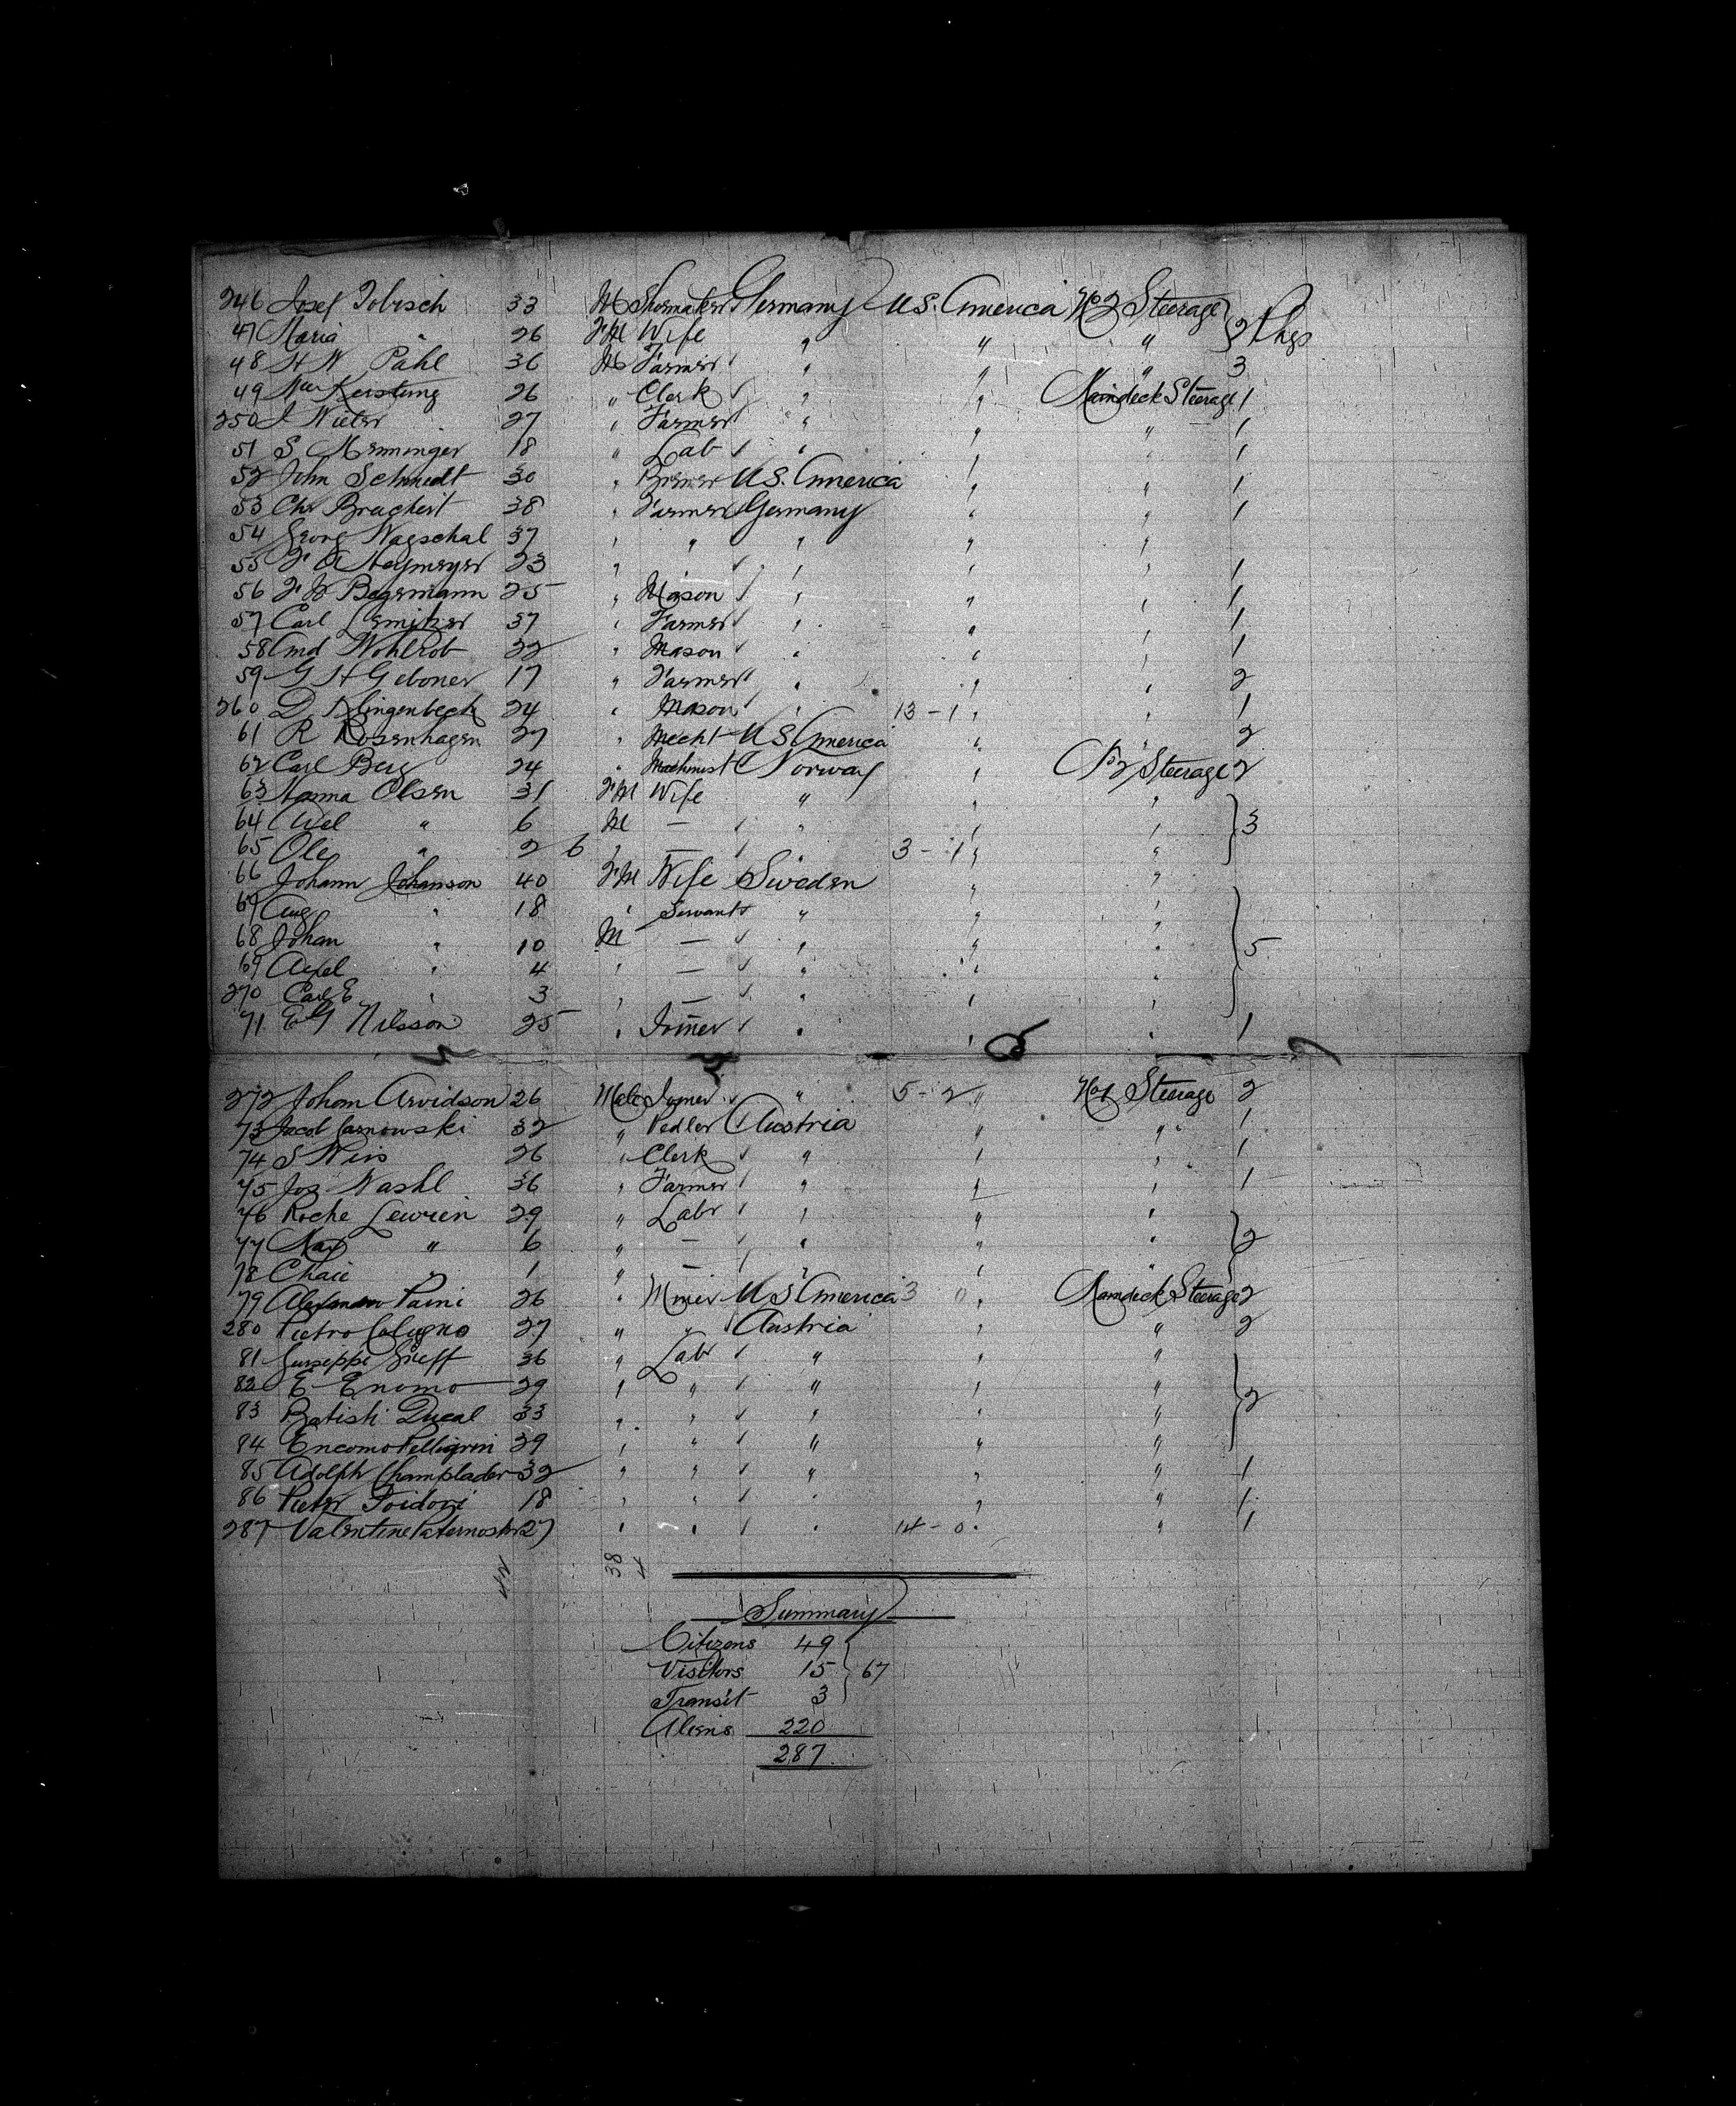 246 Josef Tobisch 33 M Shoemaker Germany U.S. America No 2 Steerage } 2 Pkgs
47 Maria " 26 FM Wife " " "
48 H W Pahl 36 M Farmer " " " 3
49 Kersting 26 " Clerk " " Maindeck Steerage 1
250 J Nieter 27 " Farmer " " " 1
51 S Menninger 18 " Lab " " " 1
52 John Schmidt 30 " U.S. America " " 1
53 Chr 38 " Farmer Germany " " 1
54 Georg Wagschal 37 " " " " "
55 23 " " " " 1
56 F W 25 " Mason " " " 1
57 Carl 37 " Farmer " " " 1
58 Wohlrob 22 " Mason " " " 1
59 G H Geboner 17 " Farmer " " " 2
260 D Klingenbeck 24 " Mason " 13 - 1 " " 1
61 R Rosenhagen 27 " Mecht U S America " " 2
62 Carl Berg 24 " Machinist Norway " No 2 Steerage 2
63 Olsen 31 FM Wife " " " } 3
64 " 6 M — " " "
65 Ole " 2 6 " — " 3 - 1 " "
66 Johann Johanson 40 FM Wife Sweden " "
67 Aug " 18 " Servant " " " } 5
68 Johan " 10 M — " " "
69 Axel " 4 " — " " "
270 Carl E " 3 " — " " "
71 E G Nilsson 25 " Joiner " " " 1
272 Johan Arvidson 26 Male Joiner " 5 - 2 " No 1 Steerage 2
73 Jacob 32 " Pedler Austria " " 1
74 S 26 " Clerk " " " 1
75 Jos Washl 36 " Farmer " " " 1
76 Roche Lewrien 29 " Labr " " " } 2
77 " 6 " — " " "
78 Chaie " 1 " — " " "
79 Paini 26 " Miner U S America 3 " " Maindeck Steerage 2
280 Pietro 27 " " Austria " " 2
81 Guiseppe 36 " Labr " " " } 2
82 E Enomo 29 " " " " "
83 Batisti Ducal 33 " " " " "
84 Encomo Pelligrini 29 " " " " "
85 Adolph Champlader 32 " " " " " 1
86 Pieter 18 " " " " " 1
287 Valentine Paternoster 27 " " " 14 - 0 " " 1
42 38 4
Summary
Citizens 49
Visitors 15 } 67
Transit 3
Aliens 220
287